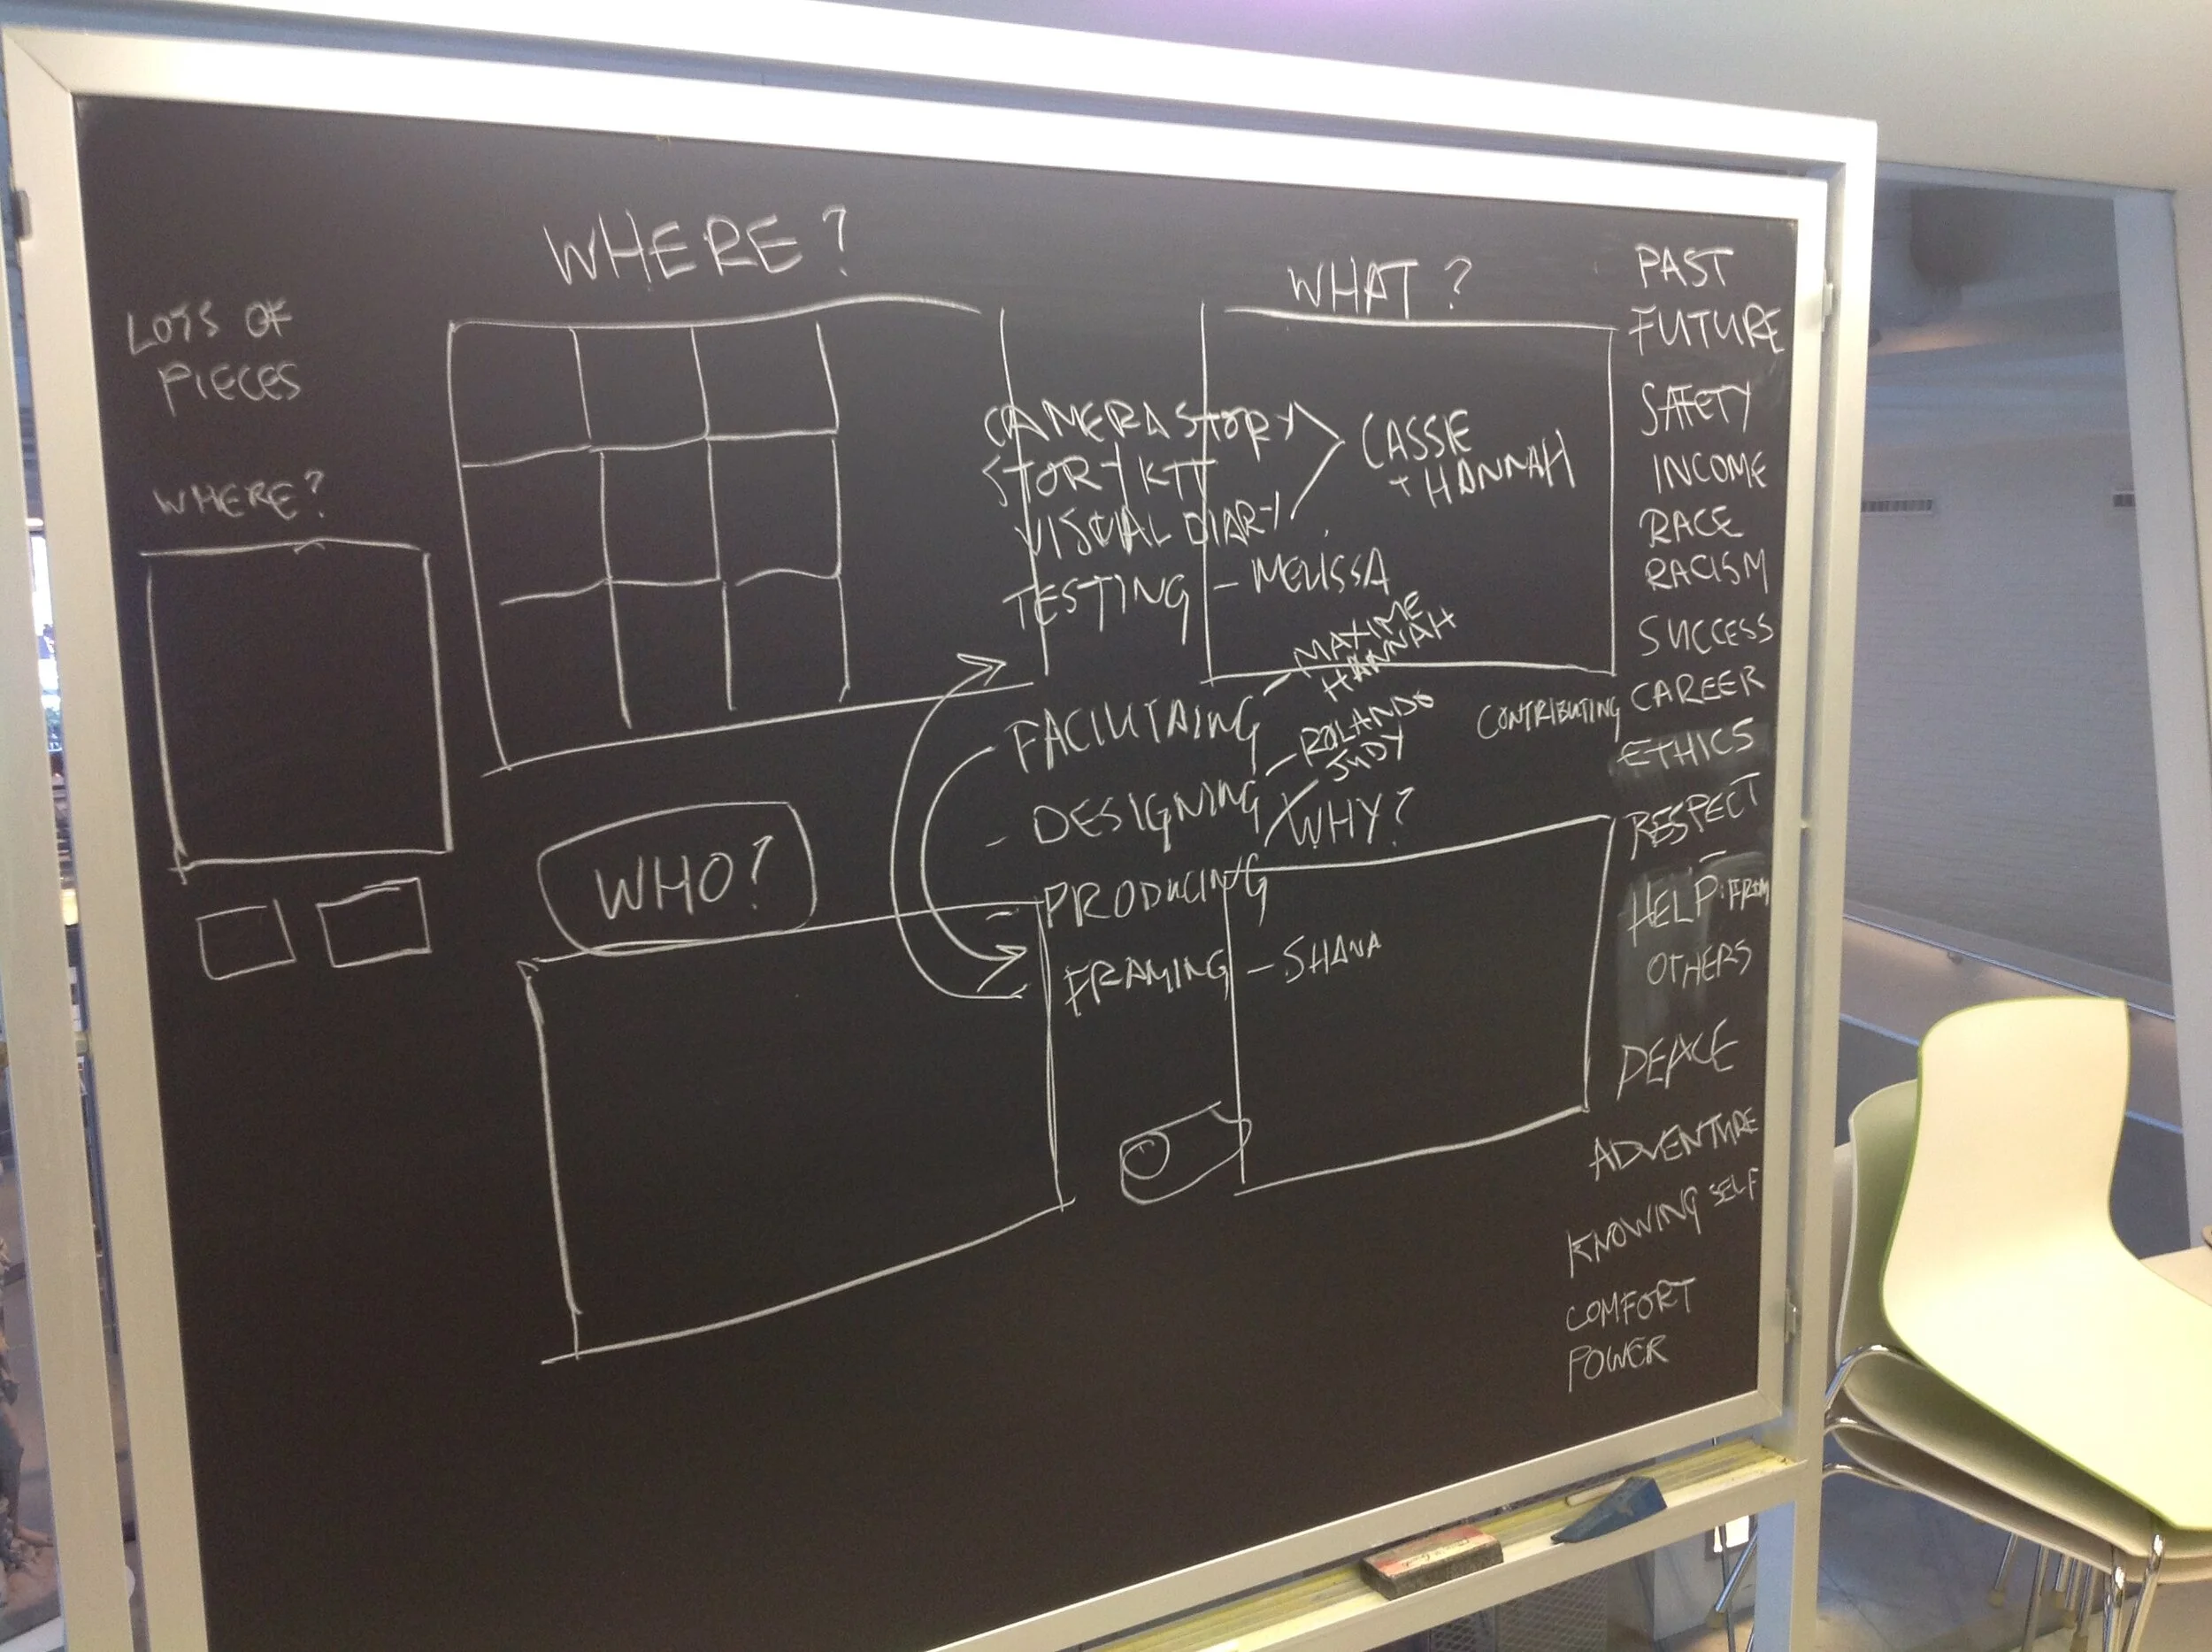 LOTS OF
PIECES
WHERE?
WHERE?
WHO?
WHAT?
CAMERA STORY
STORY KIT
VISUAL DIARY
CASSIE
+ HANNAH
TESTING - MELISSA
FACILITAING - MAXIME
HANNAH
- DESIGNING - ROLANDO
JUDY
WHY?
- PRODUCING
FRAMING - SHANA
PAST
FUTURE
SAFETY
INCOME
RACE
RACISM
SUCCESS
CONTRIBUTING CAREER
ETHICS
RESPECT
HELP: FROM
OTHERS
PEACE
ADVENTURE
KNOWING SELF
COMFORT
POWER